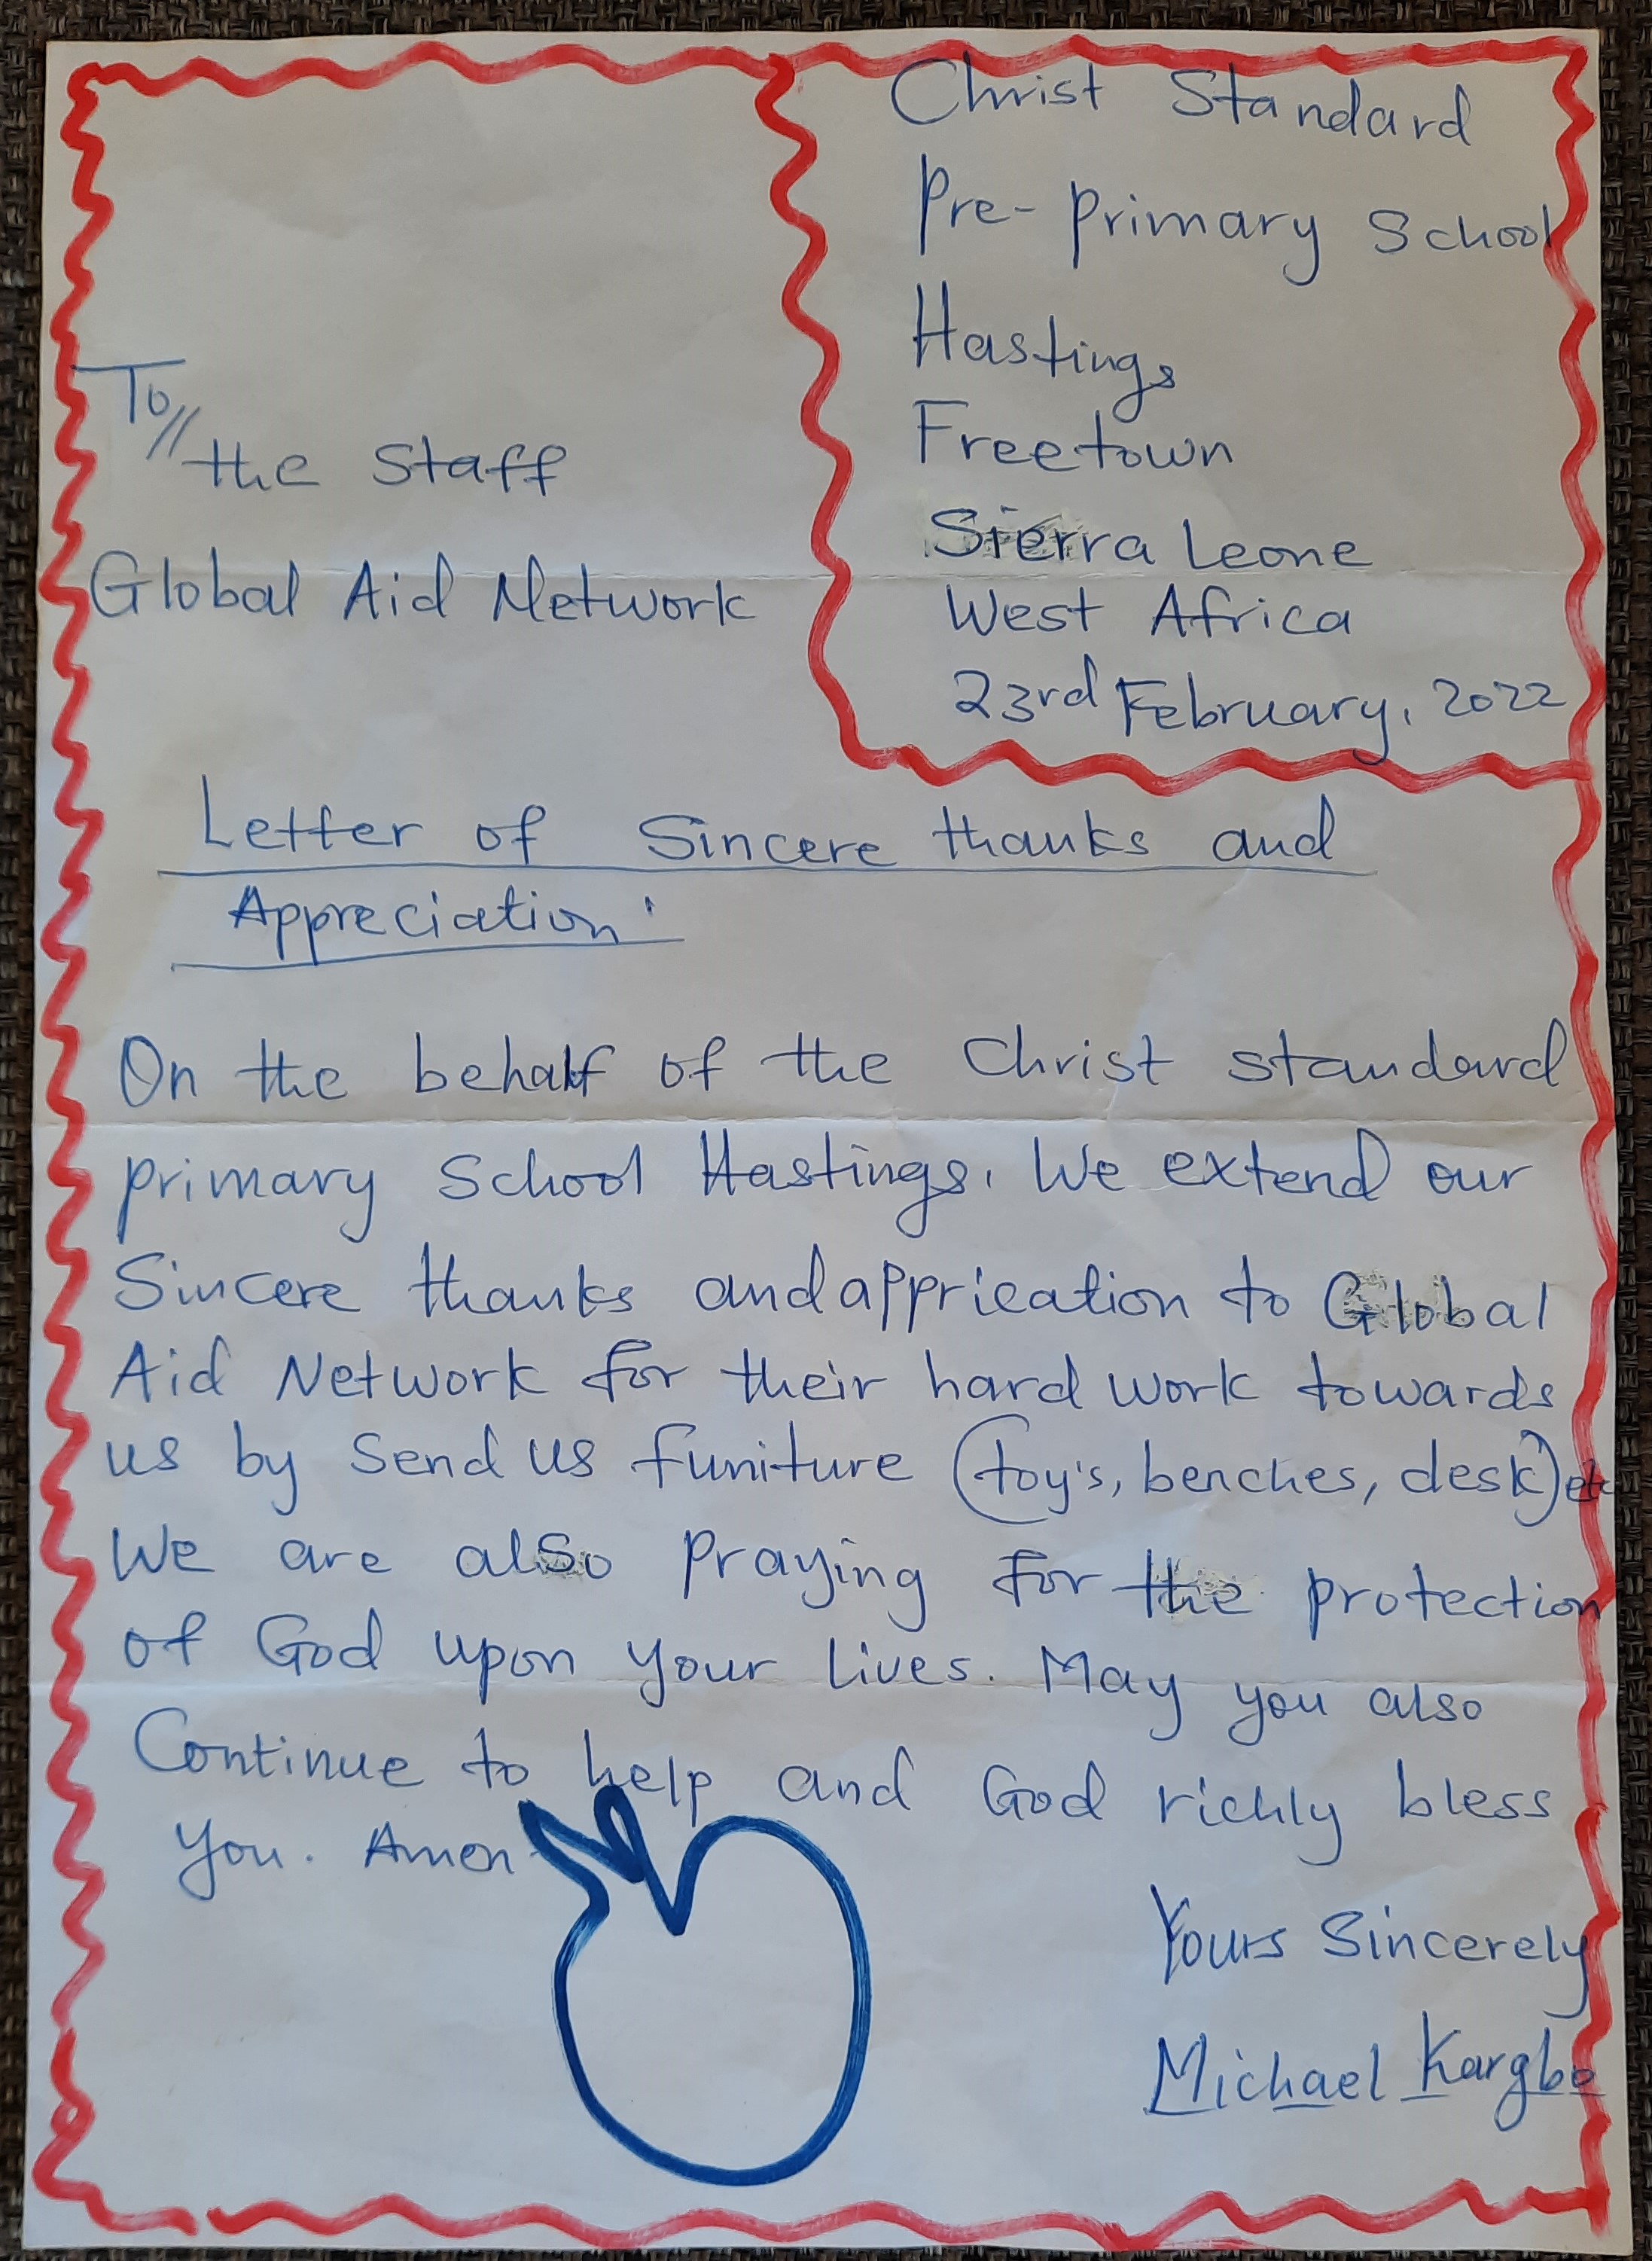 Christ Standard
Pre-primary School
Hastings
Freetown
Sierra Leone
West Africa
23rd February, 2022
To//
the Staff
Global Aid Network
Letter of Sincere thanks and
Appreciation.
On the behalf of the Christ standard
primary School Hastings. We extend our
Sincere thanks and apprication to Global
Aid Network for their hard work towards
us by Send us funiture (toy's, benches, desk) etc
We are also praying for the protection
of God upon your lives. May you also
Continue to help and God richly bless
you. Amen
Yours Sincerely
Michael Kargbo